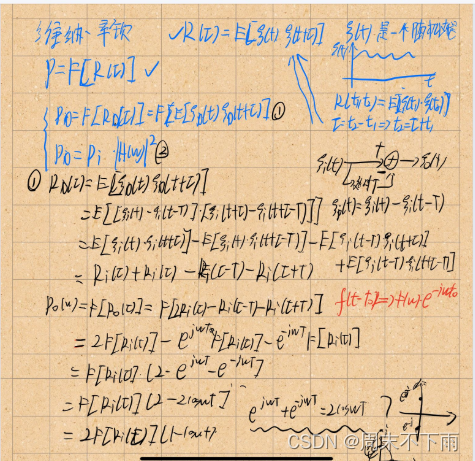 维纳-辛钦
✓R(τ)=E[ξ(t)ξ(t+τ)]
ξ(t)是一个随机过程
ξ(t)
t
P=F[R(τ)] ✓
R(t1,t2)=E[ξ(t1)·ξ(t2)]
τ=t2-t1=>t2=τ+t1
P0=F[R0(τ)]=F[E[ξ0(t)ξ0(t+τ)] ①
P0=Pi·|H(w)|² ②
ξi(t) + → ξ0(t)
① R0(τ)=E[ξ0(t)ξ0(t+τ)]
=E[[ξi(t)-ξi(t-T)]·[ξi(t+τ)-ξi(t+τ-T)]] ξ0(t)=ξi(t)-ξi(t-T)
=E[ξi(t)·ξi(t+τ)]-E[ξi(t)·ξi(t+τ-T)]-E[ξi(t-T)ξi(t+τ)]
+E[ξi(t-T)·ξi(t+τ-T)]
=Ri(τ)+Ri(τ)-Ri(τ-T)-Ri(τ+T)
P0(w)=F[R0(τ)]=F[2Ri(τ)-Ri(τ-T)-Ri(τ+T)] f(t-t0)<=>F(w)·e^-jwt0
=2F[Ri(τ)]-e^jwT F[Ri(τ)]-e^-jwT F[Ri(τ)]
=F[Ri(τ)]·(2-e^jwT-e^-jwT)
=F[Ri(τ)](2-2coswT)
e^jwT+e^-jwT=2coswT
=2F[Ri(τ)](1-coswT)
CSDN @周末不下雨